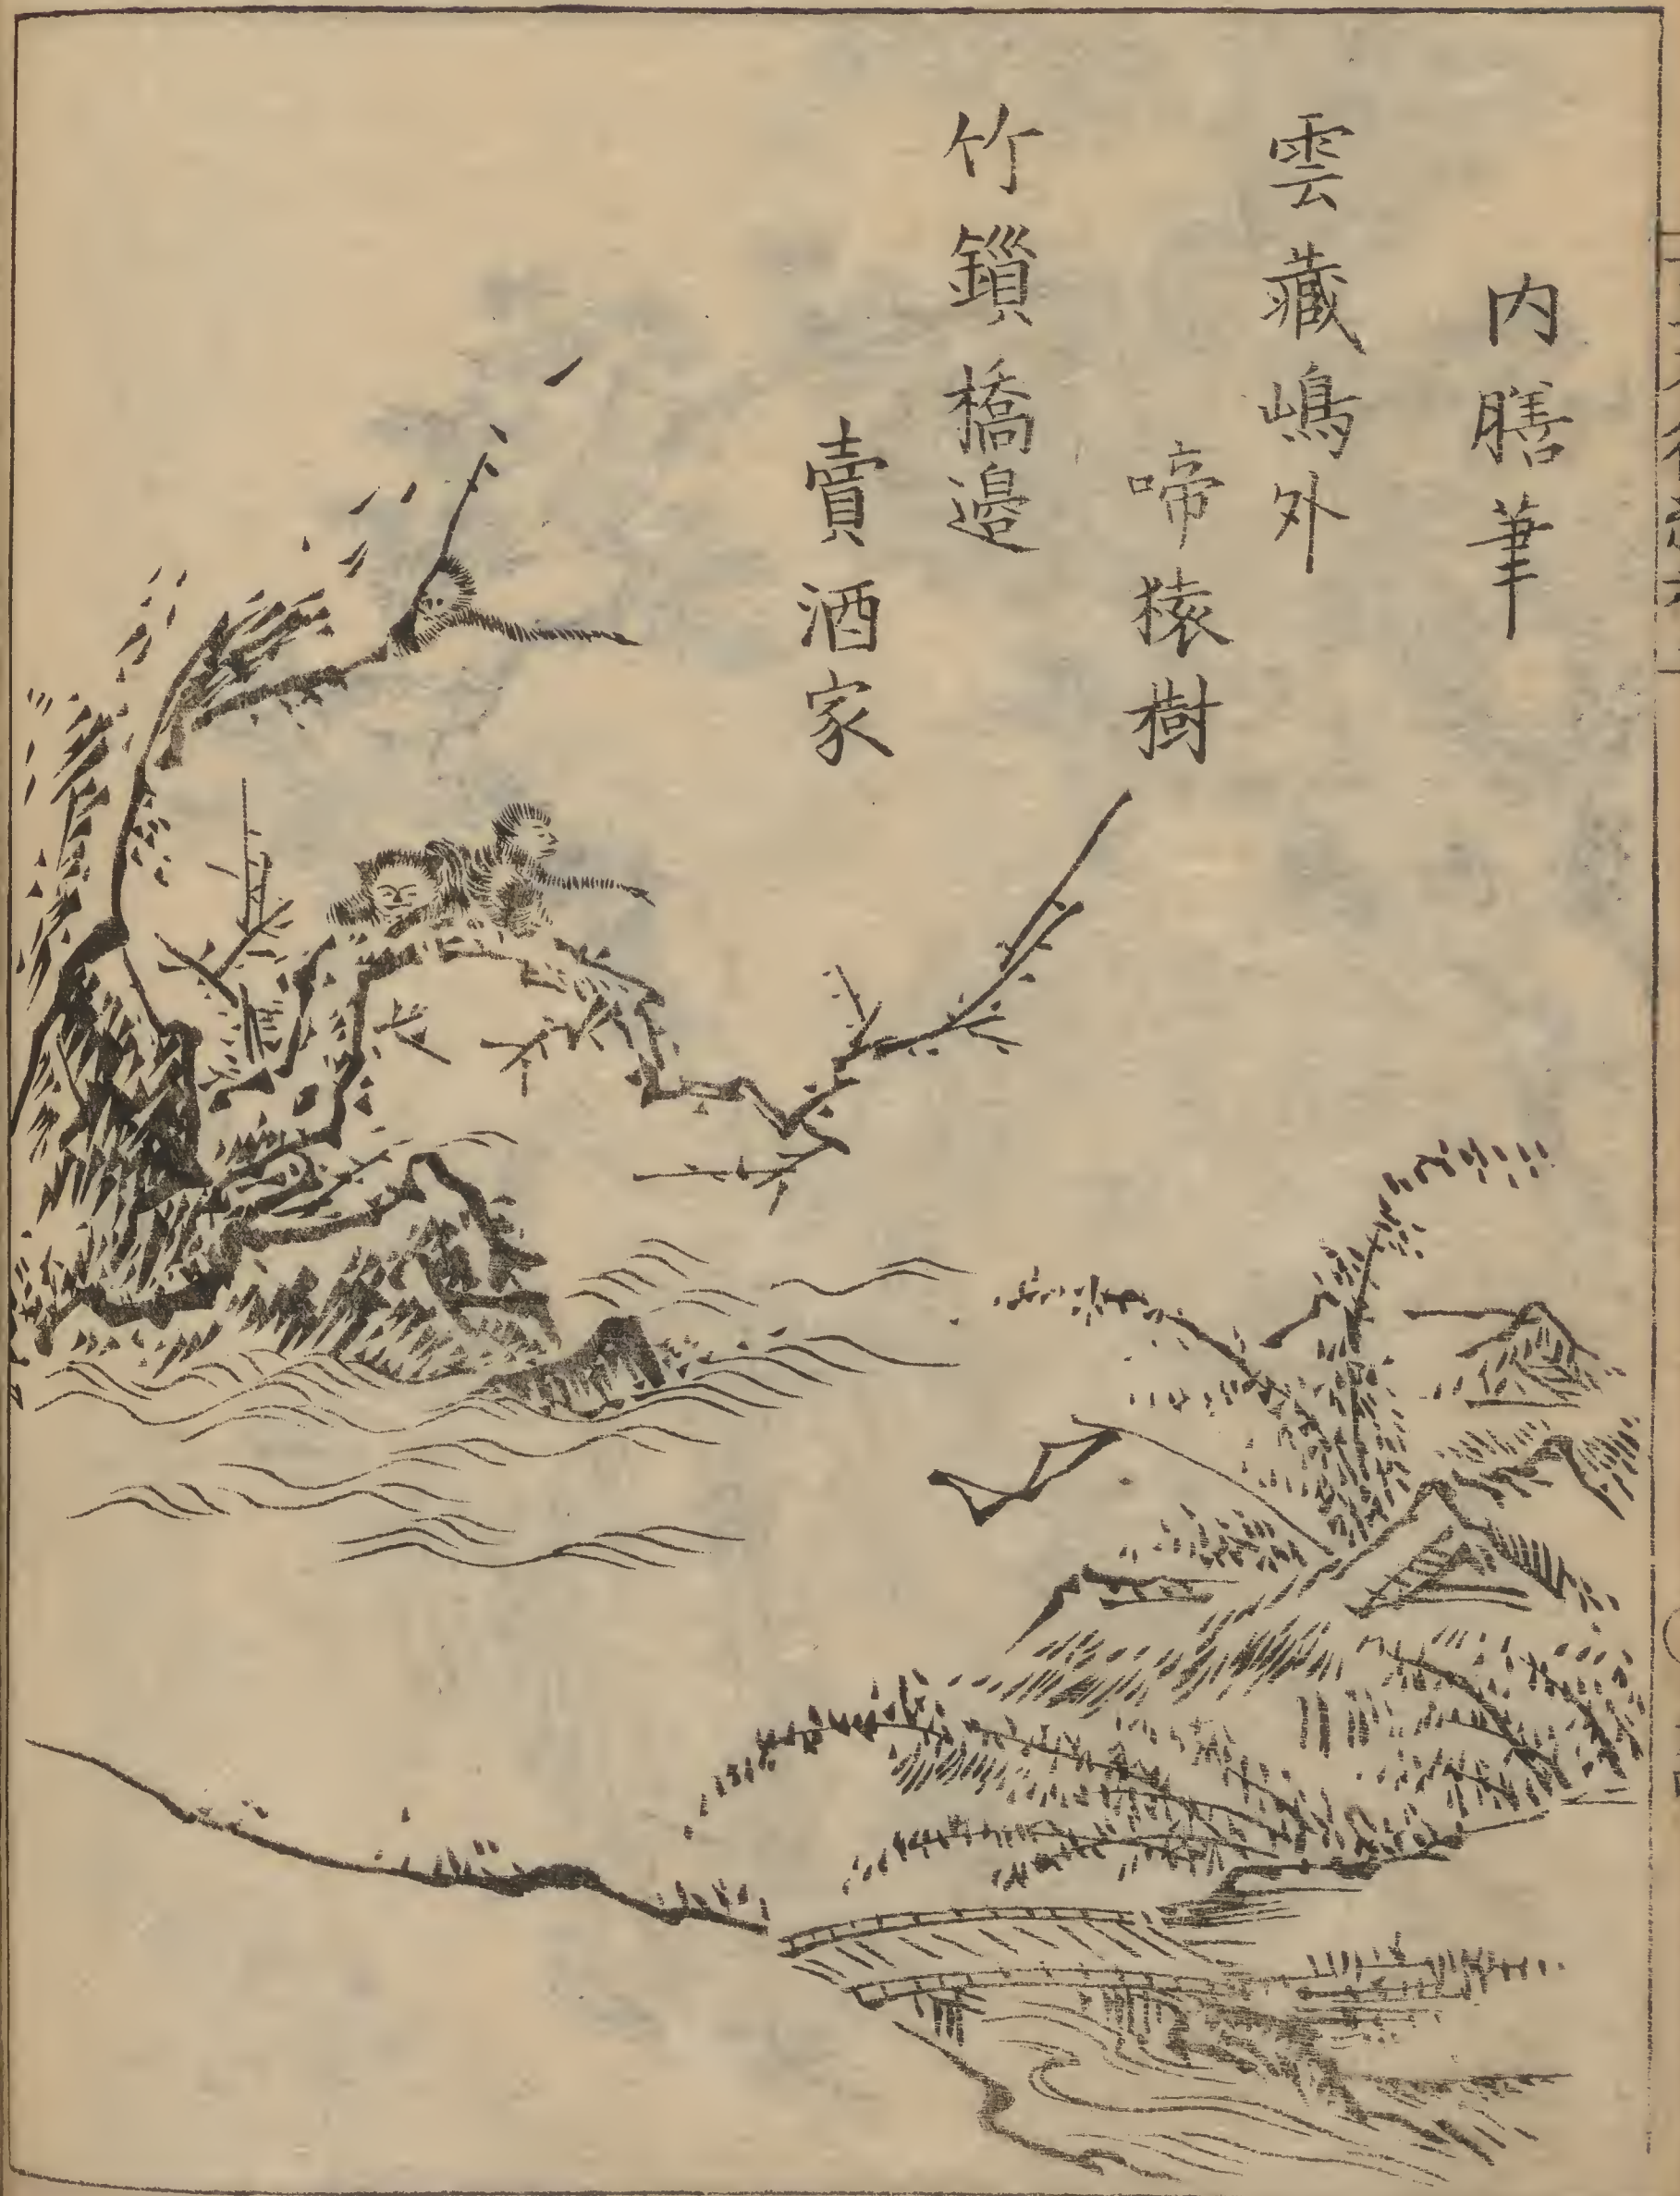 内膳筆
雲藏嶋外
啼猿樹
竹鎻橋邉
賣酒家